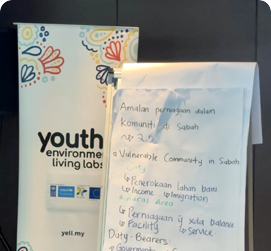 youth
environment
living labs
unicef
yell.my
Amalan perniagaan dalam
Komuniti di Sabah
Vulnerable Community in Sabah
Penerokaan lahan baru
Income
Imigration
Rural Area
Perniagaan yg xda balance
Facility
Service
Duty-Bearers